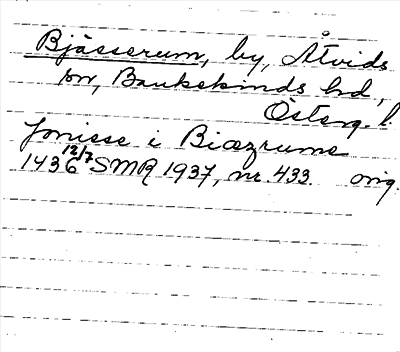 Bjässerum, by, Åtvids
sn, Bankekinds hd,
Österg. l.
Jonisse i Biæzrums
1436 12/7 SMR 1937, nr. 433. orig.